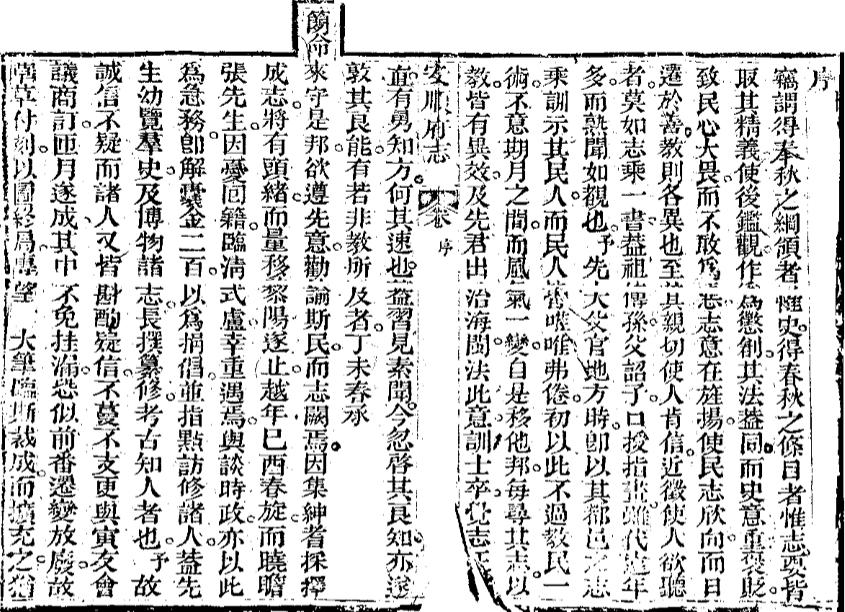 序
竊謂得春秋之綱領者惟史得春秋之條目者惟志要皆
取其精義使後鑑觀作為懲創其法葢同而史意重褒貶
致民心大畏而不敢為惡志意在旌揚使民志欣向而日
遷於善教則各異也至其親切使人肯信近徵使人欲聽
者莫如志乘一書葢祖傳孫父詔子口授指畫雖代遠年
多而熟聞如覩也予先大父官地方時卽以其都邑之志
乘訓示其民人而民人嘗唯唯弗倦初以此不過教民一
術不意期月之間而風氣一變自是移他邦每尋其志以
教皆有異效及先君出治海閩法此意訓士卒覺志
安順府志 卷 序
直有勇知方何其速也葢習見素聞今忽啓其良知亦遂
敦其良能有若非教所及者丁未春承
簡命
來守是邦欲遵先意勸諭斯民而志闕焉因集紳耆採擇
成志將有頭緒而量移黎陽遂止越年巳酉春旋而曉瞻
張先生因憂囘籍臨淸式盧幸重遇焉與談時政亦以此
為急務卽解囊金二百以為捐倡並指點訪修諸人葢先
生幼覽羣史及博物諸志長撰纂修考古知人者也予故
誠信不疑而諸人又皆斟酌疑信不蔓不支更與寅友會
議商訂匝月遂成其中不免挂漏恐似前番遷變放廢故
草草付刻以圖終局專望 大筆臨斯裁成而擴充之猶